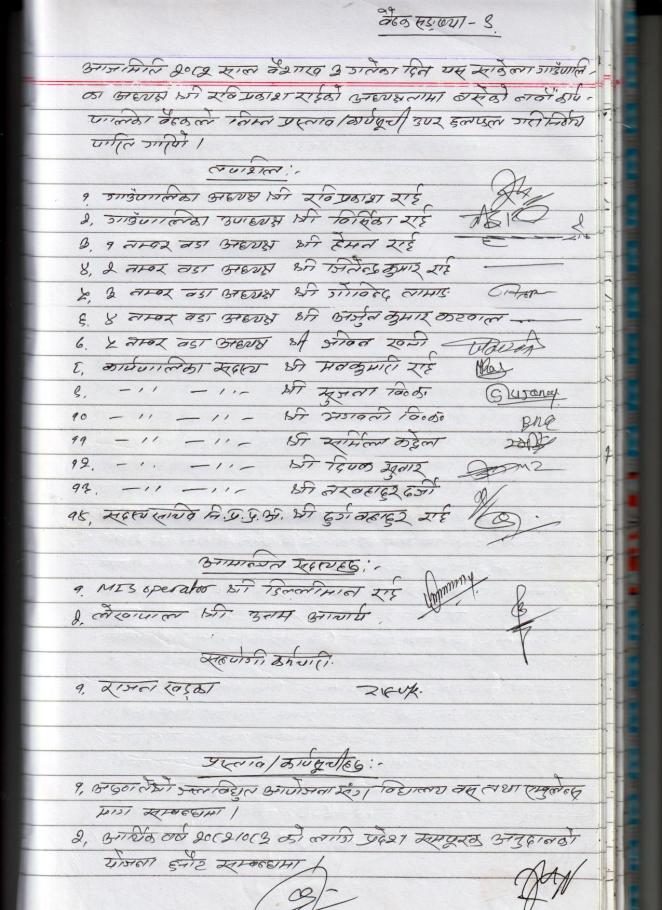 बैठक सङ्ख्या - ९
आजमिति २०८२ साल बैशाख ३ गतेका दिन यस साकेला गाउँपालि-
का अध्यक्ष श्री रविप्रकाश राईको अध्यक्षतामा बसेको नवौं कार्य-
पालिका बैठकले निम्न प्रस्ताव/कार्यसूची उपर छलफल गरी निर्णय
पारित गरियो ।
तपशिल:-
१. गाउँपालिका अध्यक्ष श्री रविप्रकाश राई
२. गाउँपालिका उपाध्यक्ष श्री राई
३. १ नम्बर वडा अध्यक्ष श्री हेमन राई
४. २ नम्बर वडा अध्यक्ष श्री जितेन्द्रकुमार राई
५. ३ नम्बर वडा अध्यक्ष श्री गोविन्द तामाङ
६. ४ नम्बर वडा अध्यक्ष श्री अर्जुन कुमार कटवाल
७. ५ नम्बर वडा अध्यक्ष श्री जीवन
८. कार्यपालिका सदस्य श्री मनकुमारी राई
९. - '' - '' - श्री सुजता वि.क.
१० - '' - '' - श्री भगवती वि.क.
११ - '' - '' - श्री कट्टेल
१२. - '' - '' - श्री दिपक सुनार
१३. - '' - '' - श्री नरबहादुर दर्जी
१४. सदस्य सचिव नि.प्र.प्र.अ. श्री दुर्गा बहादुर राई
आमन्त्रित सदस्यहरु:-
१. MIS operator श्री डिल्लीमान राई
२. लेखापाल श्री उत्तम आचार्य
सहयोगी कर्मचारी:
१. राजन खड्का
प्रस्ताव/कार्यसूचीहरु:-
१. जलविद्युत आयोजना संग विद्यालय बस तथा एम्बुलेन्स
माग सम्बन्धमा ।
२. आर्थिक वर्ष २०८२/०८३ को लागि प्रदेश समपूरक अनुदानको
योजना छनौट सम्बन्धमा ।